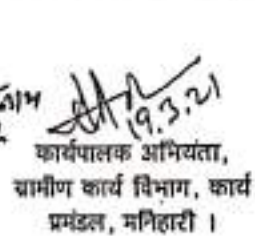 19.3.21
कार्यपालक अभियंता,
ग्रामीण कार्य विभाग, कार्य
प्रमंडल, मनिहारी ।